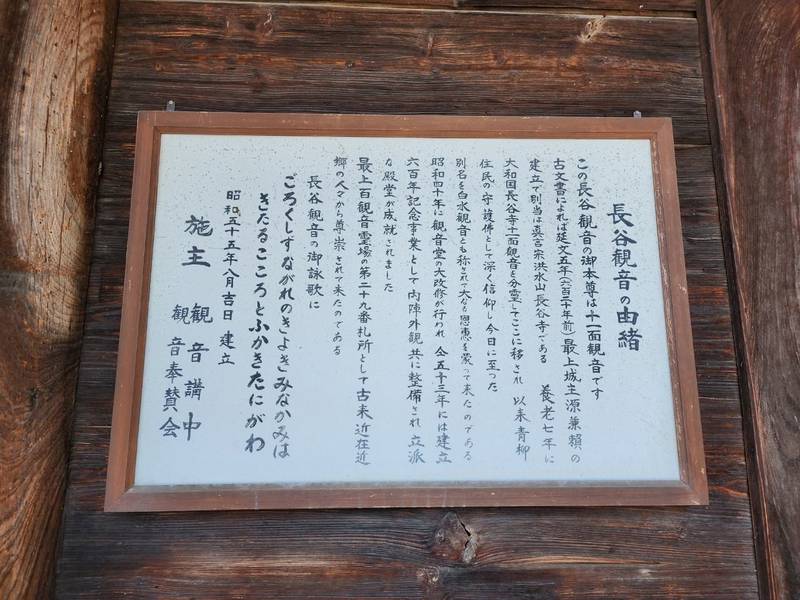 長谷観音の由緒
この長谷観音の御本尊は十一面観音です
古文書によれば延文五年(六百二十年前)最上城主源兼頼の
建立で別当は真言宗洪水山長谷寺である 養老七年に
大和国長谷寺十一面観音を分霊してここに移され 以来青柳
住民の守護佛として深く信仰し今日に至った
別名を白水観音とも称されて大なる恩恵を蒙って来たのである
昭和四十年に観音堂の大改修が行われ 仝五十三年には建立
六百年記念事業として内陣外観共に整備され立派
な殿堂が成就されました
最上百観音霊場の第二十九番札所として古来近在近
郷の人々から尊崇されて来たのである
長谷観音の御詠歌に
ごろくしずながれのきよきみなかみは
きたるこころとふかきたにがわ
昭和五十五年八月吉日 建立
施主 観音講中
観音奉賛会